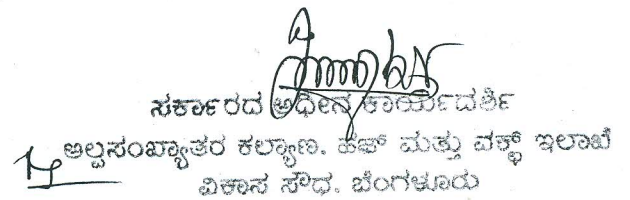 ಸರ್ಕಾರದ ಅಧೀನ ಕಾರ್ಯದರ್ಶಿ
ಅಲ್ಪಸಂಖ್ಯಾತರ ಕಲ್ಯಾಣ, ಹಜ್ ಮತ್ತು ವಕ್ಫ್ ಇಲಾಖೆ
ವಿಕಾಸ ಸೌಧ, ಬೆಂಗಳೂರು